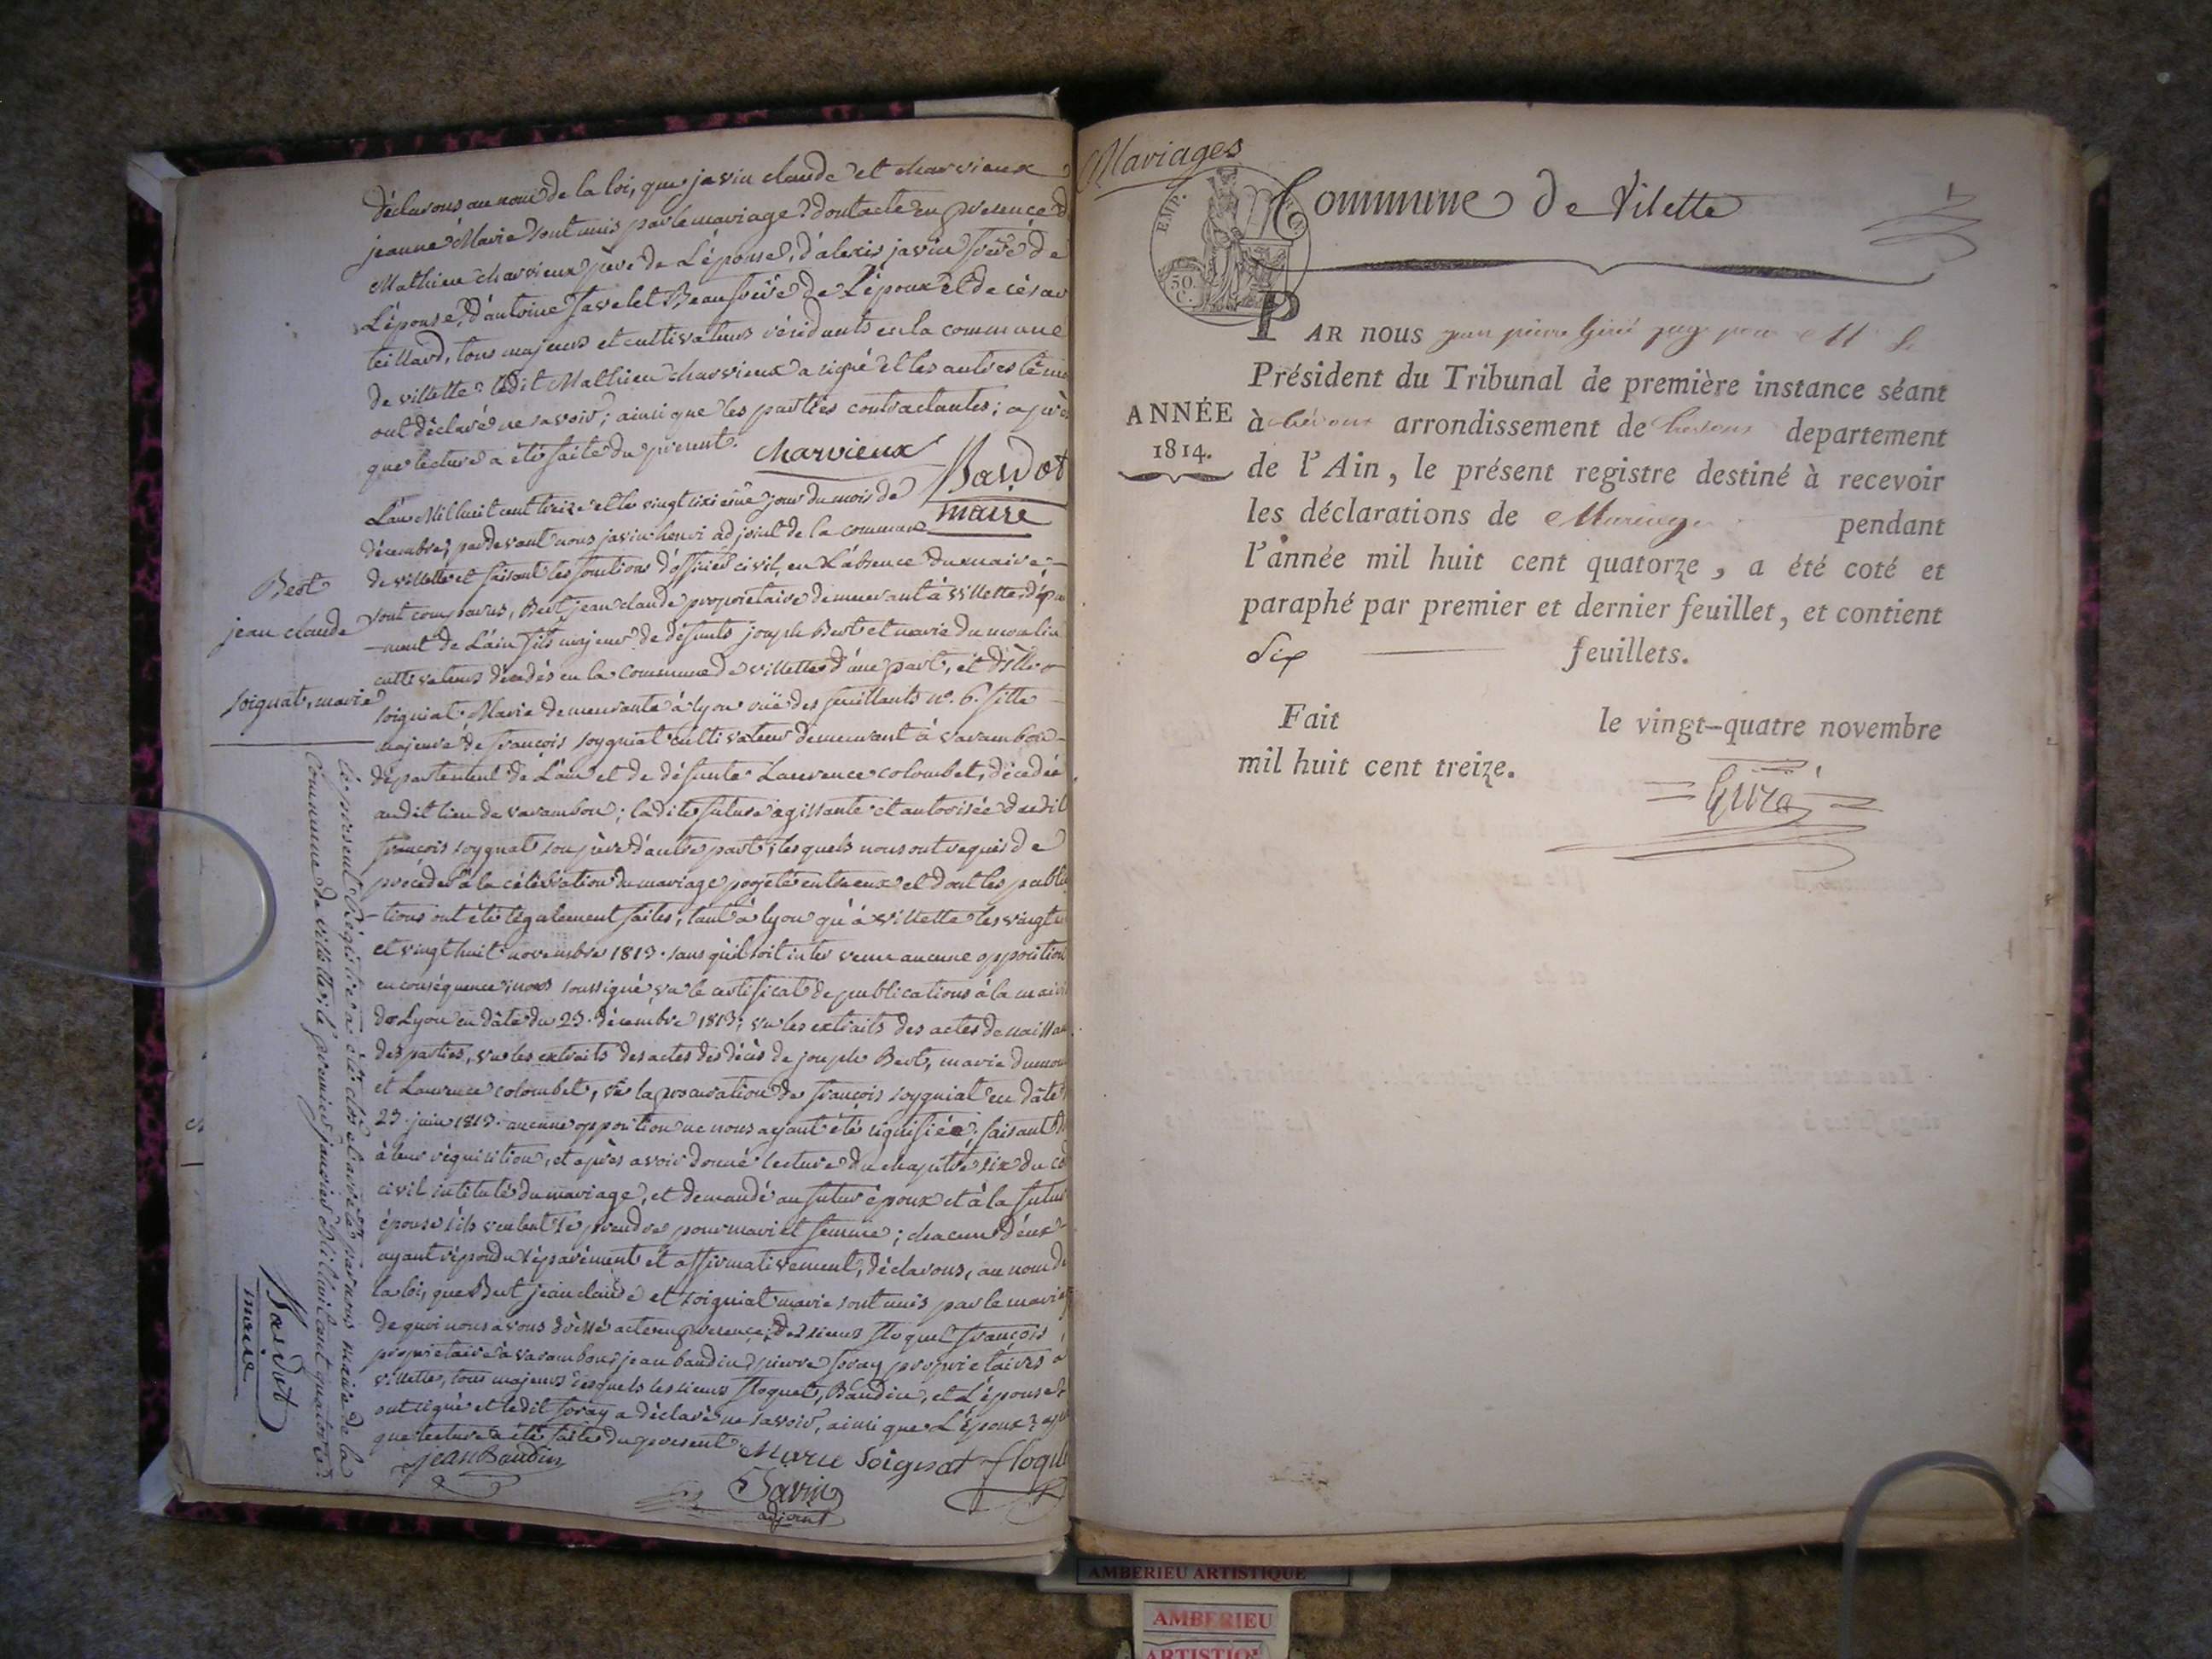 déclarons au nom de la loi, que javin claude et charvieux
jeanne Marie sont unis par le mariage, dont acte en presence de
Mathieu charvieux père de L'épouse, d'alexis javin frère de
L'épouse, d'antoine favelet Beaufrère de L'époux et de césar
teillard, tous majeurs et cultivateurs résidants en la commune
de villette ledit Mathieu charvieux a signé et les autres témoins
ont déclaré ne savoir; ainsi que les parties contractantes; après
que lecture a été faite du present.
charvieux
Bardot
maire
L'an Mil huit cent treize et le vingt sixième jour du mois de
décembre, pardevant nous javin henri adjoint de la commune
de villette et faisant les fonctions d'officier civil, en L'absence du maire
sont comparus, Bert jean claude propriétaire demeurant à villette, dépa
-ment de L'ain fils majeur de défunts joseph Bert et marie dumoulin
cultivateurs décédés en la commune de villette d'une part, et dlle
soigniat Marie demeurante à lyon rüe des feuillants n°. 6. fille
majeure de françois soygniat cultivateur demeurant à varambon
département de L'ain et de défunte Laurence colombet, décédée
audit lieu de varambon; ladite future agissante et autorisée dudit
françois soygnat son père d'autre part; lesquels nous ont requis de
procéder à la célébration du mariage projeté entre eux et dont les public
-tions ont été légalement faites, tant à lyon qu'à villette les vingt
et vingt huit novembre 1813. sans qu'il soit intervenu aucune opposition
en conséquence, nous soussigné, vu le certificat de publications à la mairie
de Lyon en dâte du 23. décembre 1813; vu les extraits des actes de naissan
des parties, vu les extraits des actes des décès de joseph Bert, marie dumou
et Laurence colombet, vu la procuration de françois soygniat en dâte
23. juin 1813. aucune opposition ne nous ayant été signifiée; faisant
à leur réquisition, et après avoir donné lecture du chapitre six du co
civil intitulé du mariage, et demandé au futur époux et à la future
épouse s'ils veulent se prendre pour mari et femme; chacun d'eux
ayant répondu séparément et affirmativement, déclarons, au nom de
la loi, que Bert jean claude et soigniat marie sont unis par le mariage
de quoi nous avons dressé acte en presence des sieurs floquet françois
propriétaire à varambon, jean baudin, pierre foray propriétaires à
villette, tous majeurs desquels les sieurs floquet, Baudin, et L'épouse
ont signé et ledit foray a déclaré ne savoir, ainsi que L'époux; après
que lecture a été faite du present
Marie Soignat
floquet
jean Baudin
Javin
adjoint
Bert
jean claude
soignat, marie
Le present Régistre a été clos et arrêté par nous maire de la
Commune de villette; le premier janvier Mil huit cent quatorze
Bardot
maire
Mariages
Commune de Vilette
EMP.
50.
C.
PAR nous jean pierre Giré juge pour Mr le
Président du Tribunal de première instance séant
ANNÉE
1814.
à arrondissement de departement
de l'Ain, le présent registre destiné à recevoir
les déclarations de Mariage pendant
l'année mil huit cent quatorze, a été coté et
paraphé par premier et dernier feuillet, et contient
Six feuillets.
Fait le vingt-quatre novembre
mil huit cent treize.
Giré
AMBERIEU ARTISTIQUE
AMBERIEU
ARTISTIQUE